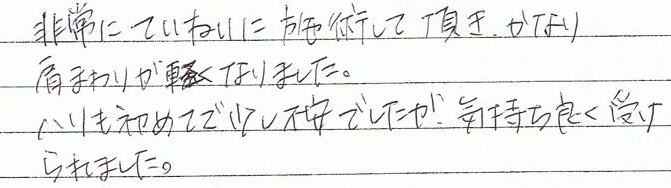 非常にていねいに施術して頂き、かなり
肩まわりが軽くなりました。
ハリも初めてで少し不安でしたが、気持ち良く受け
られました。